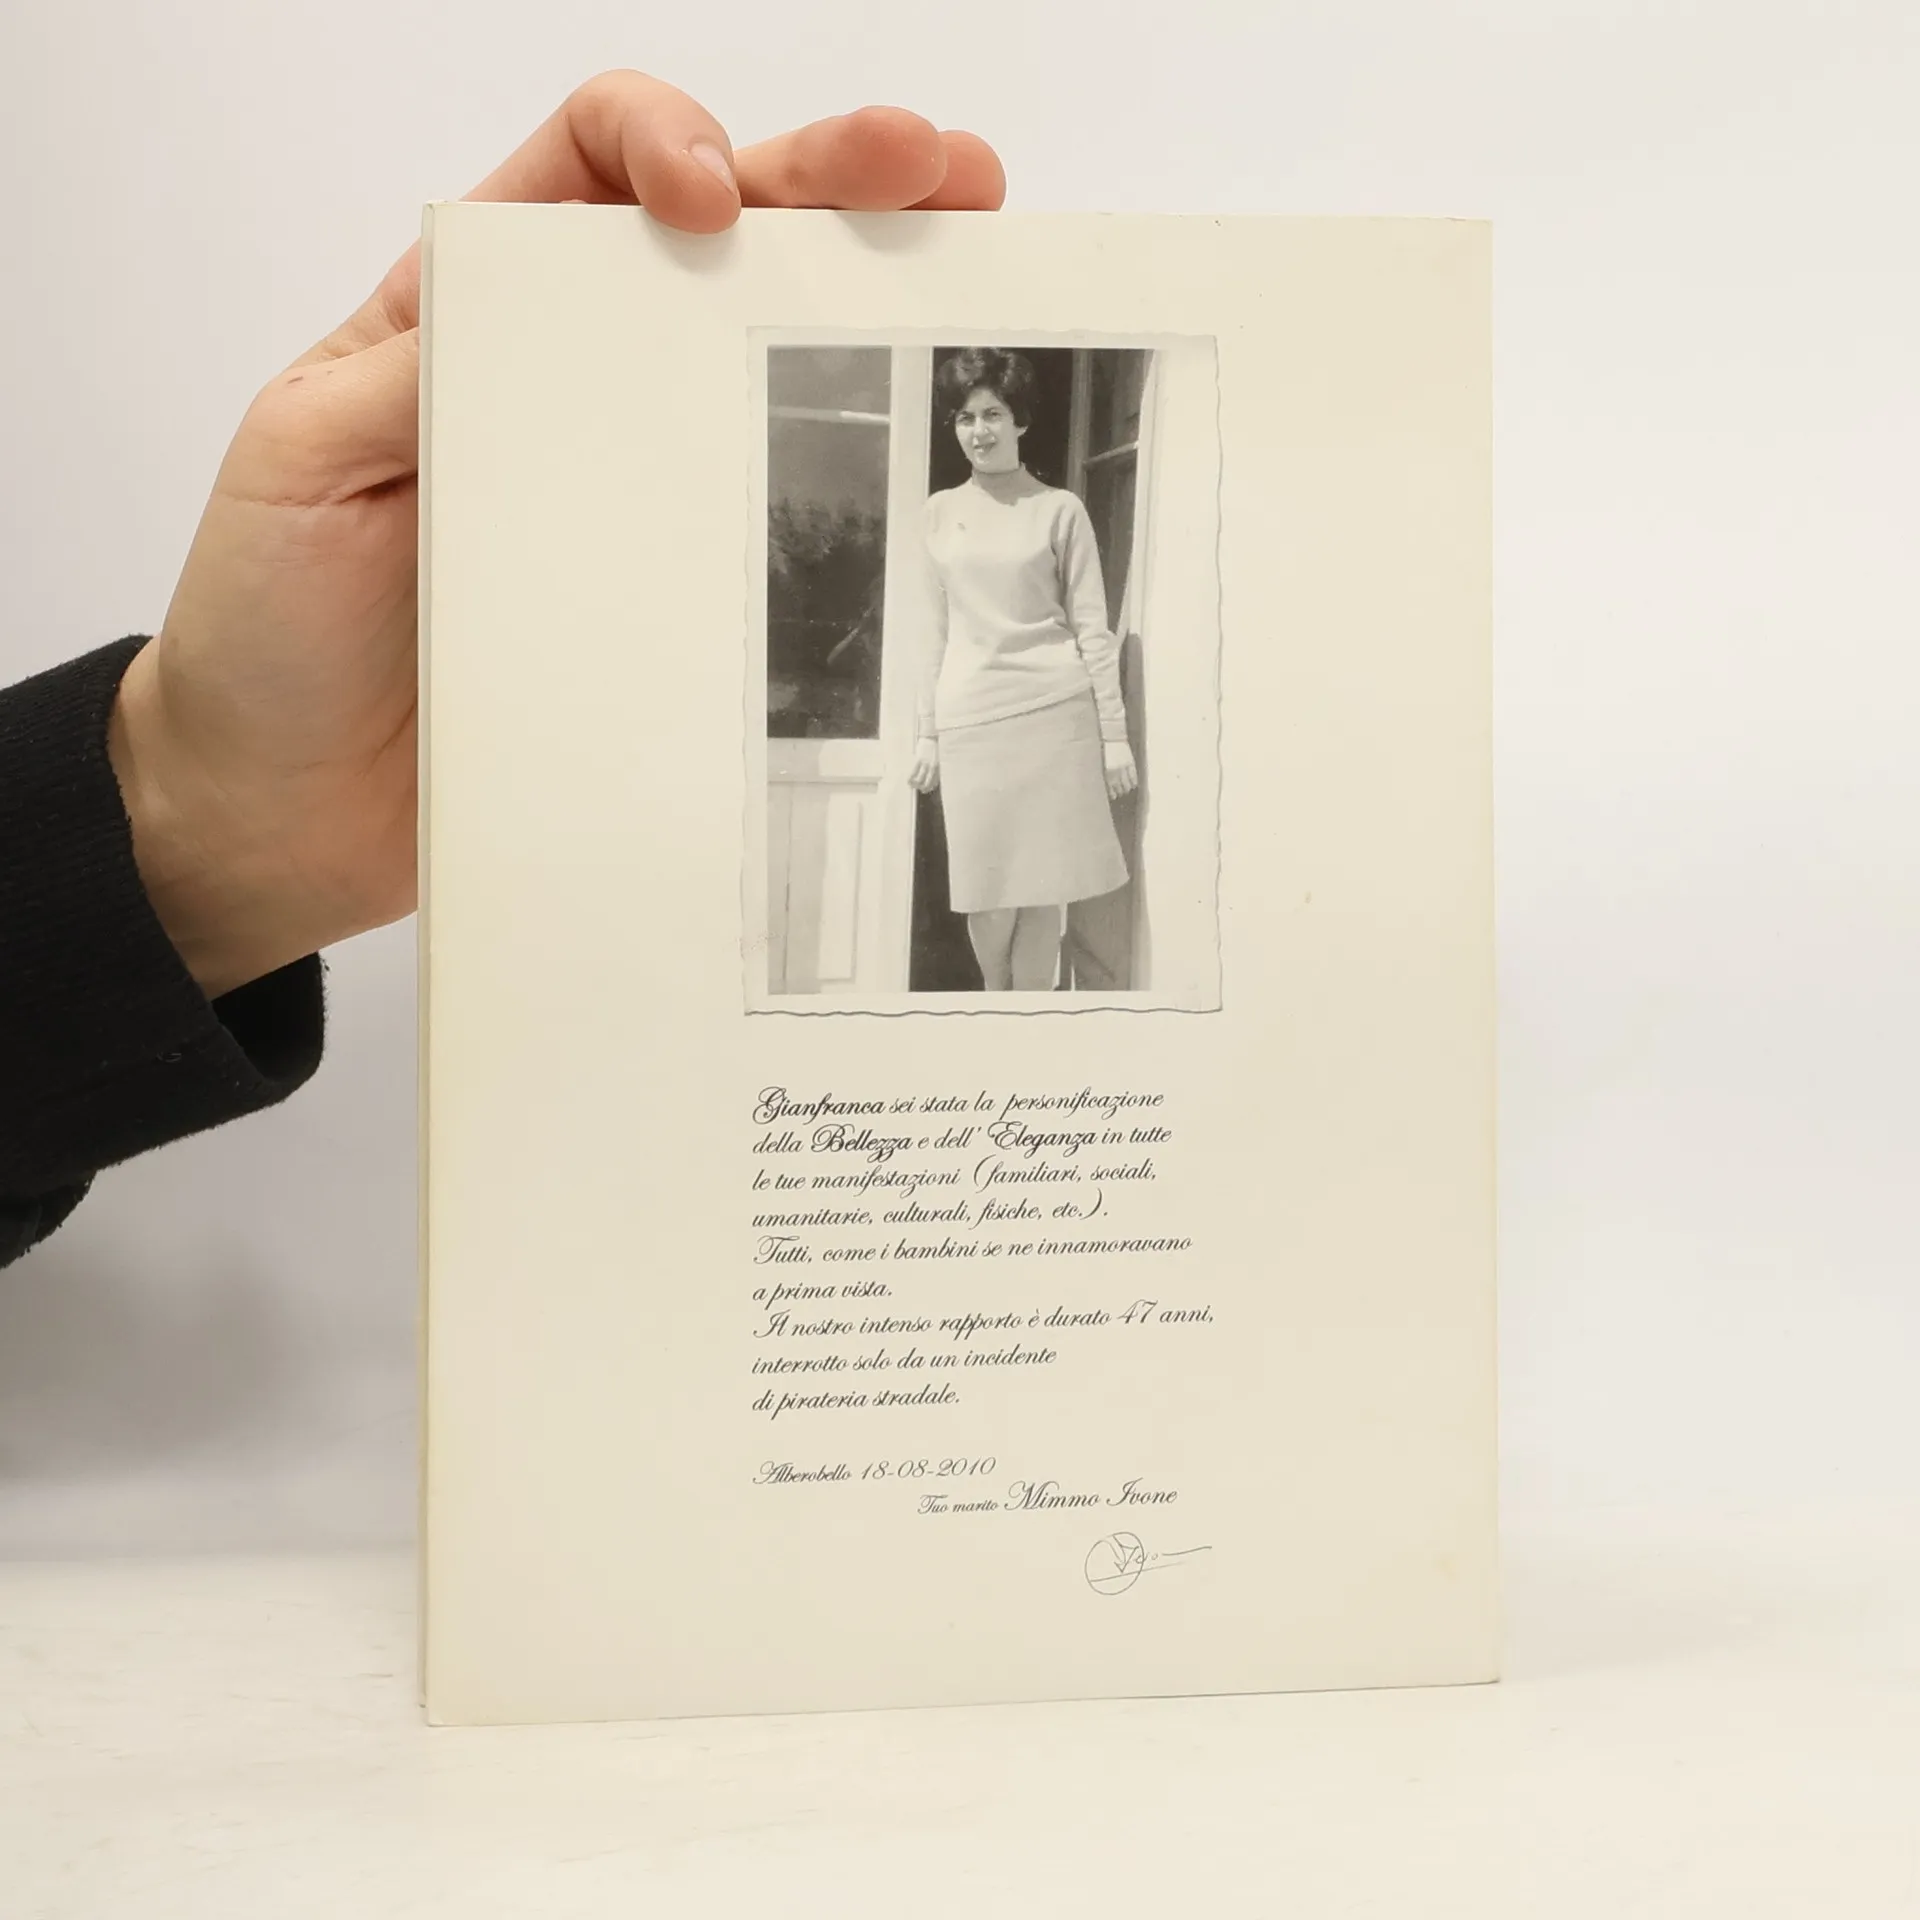 Gianfranca sei stata la personificazione
della Bellezza e dell' Eleganza in tutte
le tue manifestazioni (familiari, sociali,
umanitarie, culturali, fisiche, etc.).
Tutti, come i bambini se ne innamoravano
a prima vista.
Il nostro intenso rapporto è durato 47 anni,
interrotto solo da un incidente
di pirateria stradale.
Alberobello 18-08-2010
Tuo marito Mimmo Ivone